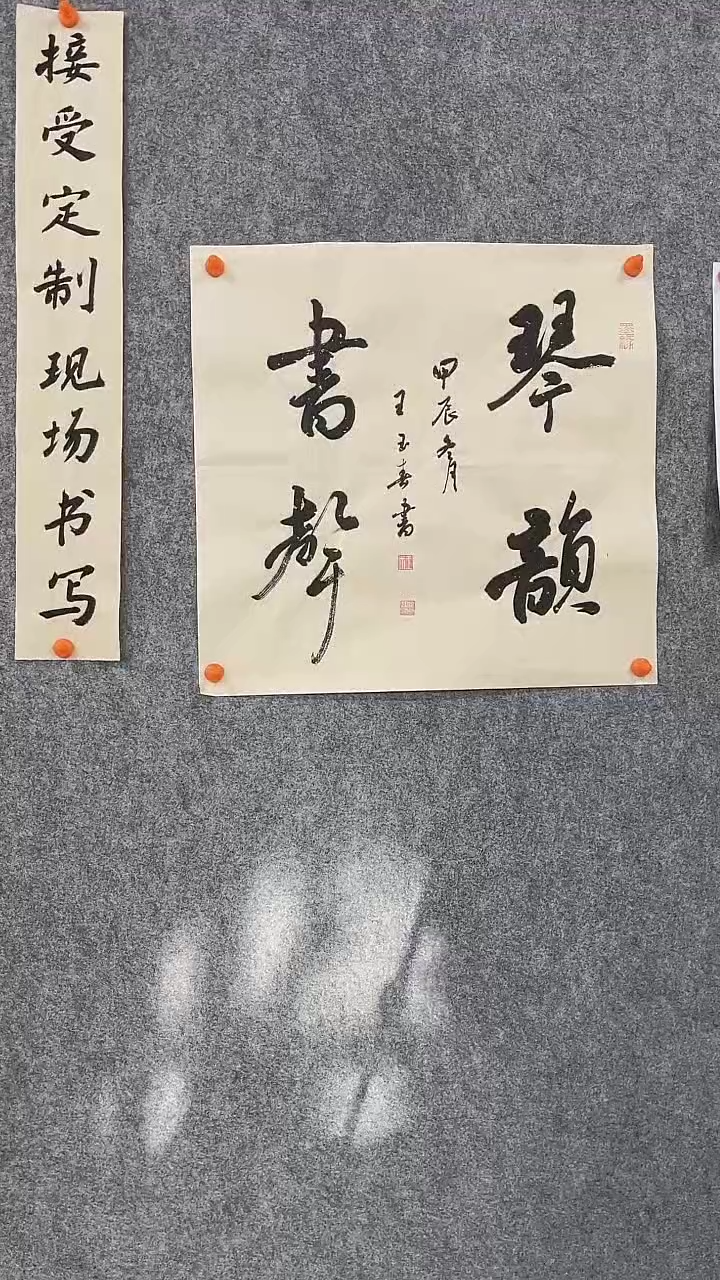 接受定制现场书写
琴韻
書聲
甲辰冬月
王玉春書